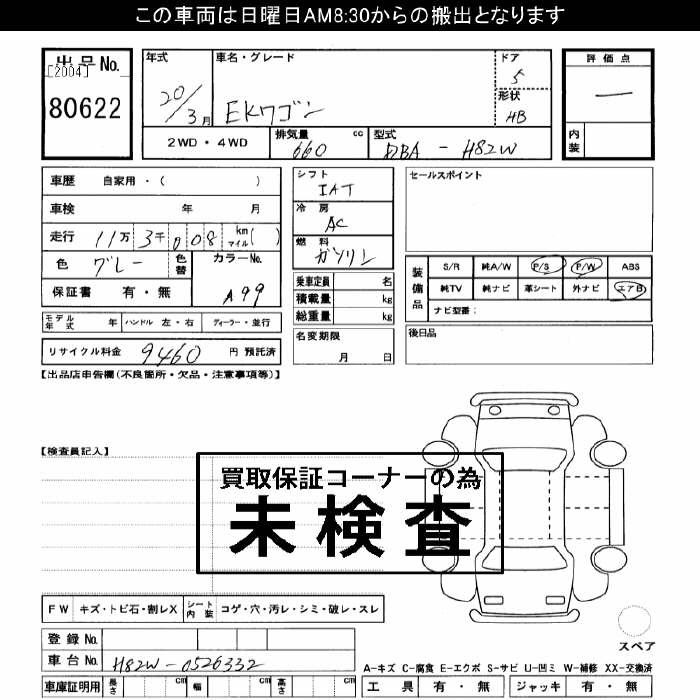 この車両は日曜日AM8:30からの搬出となります
出品No.
[2004]
80622
年式
20/3月
車名・グレード
EKワゴン
ドア
5
形状
HB
評価点
一
内装
2WD・4WD
排気量
660 cc
型式
DBA - H82W
車歴 自家用・( )
車検 年 月
走行 11万3千008 km マイル( )
色 グレー 色替 カラーNo. A99
保証書 有・無
モデル年式 年 ハンドル 左・右 ディーラー・並行
リサイクル料金 9460 円 預託済
シフト
IAT
冷房
AC
燃料
ガソリン
乗車定員 名
積載量 kg
総重量 kg
名変期限
月 日
セールスポイント
装備品
S/R 純A/W P/S P/W ABS
純TV 純ナビ 革シート 外ナビ エアB
ナビ型番:
後日品
【出品店申告欄(不良箇所・欠品・注意事項等)】
【検査員記入】
買取保証コーナーの為
未検査
FW キズ・トビ石・割レX シート内装 コゲ・穴・汚レ・シミ・破レ・スレ
登録No.
車台No. H82W-0526332
車庫証明用 長さ cm 幅 cm 高さ cm
スペア
A-キズ C-腐食 E-エクボ S-サビ U-凹ミ W-補修 XX-交換済
工具 有・無 ジャッキ 有・無